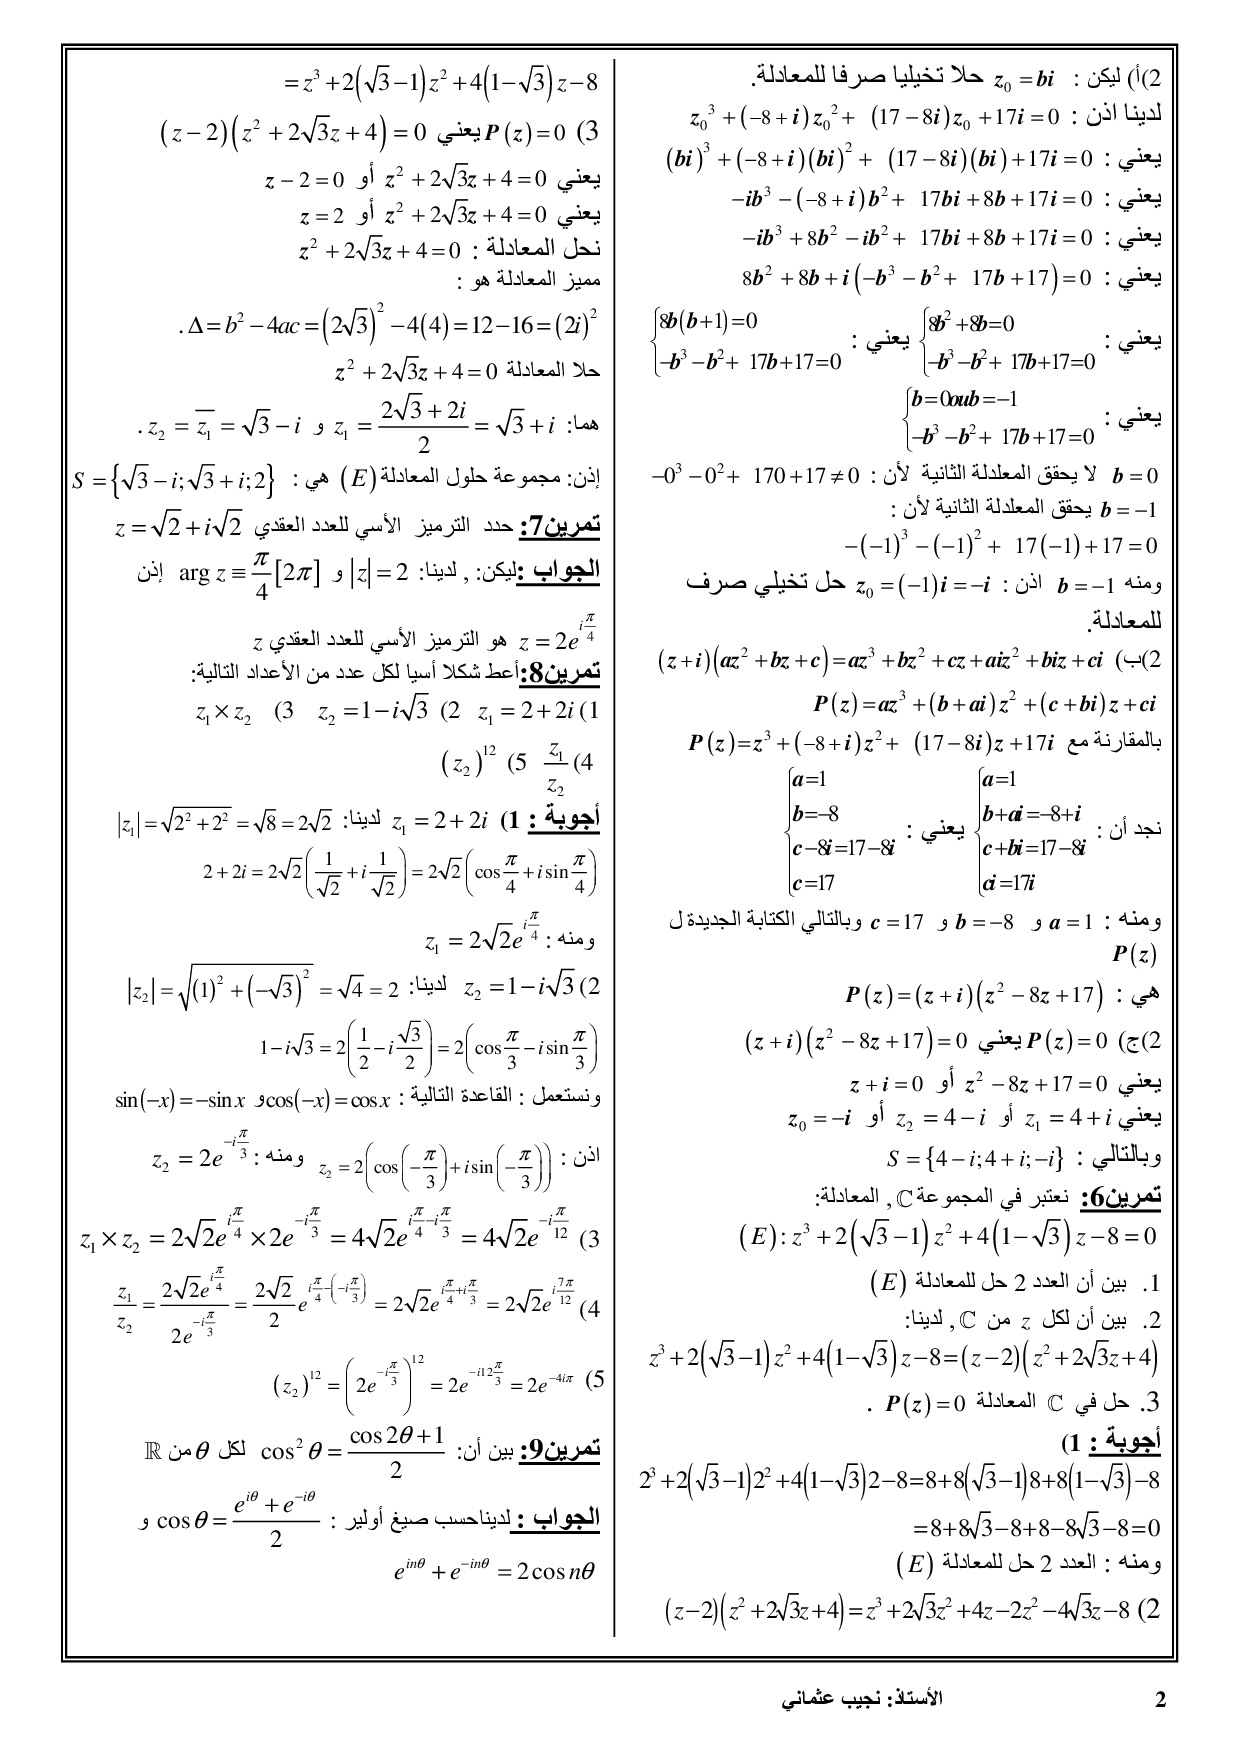 2)أ) ليكن : z₀ = bi حلا تخيليا صرفا للمعادلة.
لدينا اذن : z₀³ + (−8 + i) z₀² + (17 − 8i) z₀ + 17i = 0
يعني : (bi)³ + (−8 + i)(bi)² + (17 − 8i)(bi) + 17i = 0
يعني : −ib³ − (−8 + i) b² + 17bi + 8b + 17i = 0
يعني : −ib³ + 8b² − ib² + 17bi + 8b + 17i = 0
يعني : 8b² + 8b + i(−b³ − b² + 17b + 17) = 0
يعني : {8b² + 8b = 0 ; −b³ − b² + 17b + 17 = 0 يعني : {8b(b + 1) = 0 ; −b³ − b² + 17b + 17 = 0
يعني : {b = 0 ou b = −1 ; −b³ − b² + 17b + 17 = 0
b = 0 لا يحقق المعلدلة الثانية لأن : −0³ − 0² + 170 + 17 ≠ 0
b = −1 يحقق المعلدلة الثانية لأن :
−(−1)³ − (−1)² + 17(−1) + 17 = 0
ومنه b = −1 اذن : z₀ = (−1)i = −i حل تخيلي صرف
للمعادلة.
2)ب) (z + i)(az² + bz + c) = az³ + bz² + cz + aiz² + biz + ci
P(z) = az³ + (b + ai) z² + (c + bi) z + ci
بالمقارنة مع P(z) = z³ + (−8 + i) z² + (17 − 8i) z + 17i
نجد أن : {a = 1 ; b + ai = −8 + i ; c + bi = 17 − 8i ; ci = 17i يعني : {a = 1 ; b = −8 ; c − 8i = 17 − 8i ; c = 17
ومنه : a = 1 و b = −8 و c = 17 وبالتالي الكتابة الجديدة ل
P(z)
هي : P(z) = (z + i)(z² − 8z + 17)
2)ج) P(z) = 0 يعني (z + i)(z² − 8z + 17) = 0
يعني z² − 8z + 17 = 0 أو z + i = 0
يعني z₁ = 4 + i أو z₂ = 4 − i أو z₀ = −i
وبالتالي : S = {4 − i; 4 + i; −i}
تمرين6: نعتبر في المجموعة ℂ , المعادلة:
(E) : z³ + 2(√3 − 1) z² + 4(1 − √3) z − 8 = 0
1. بين أن العدد 2 حل للمعادلة (E)
2. بين أن لكل z من ℂ , لدينا:
z³ + 2(√3 − 1) z² + 4(1 − √3) z − 8 = (z − 2)(z² + 2√3z + 4)
3. حل في ℂ المعادلة P(z) = 0 .
أجوبة : 1)
2³ + 2(√3 − 1)2² + 4(1 − √3)2 − 8 = 8 + 8(√3 − 1)8 + 8(1 − √3) − 8
= 8 + 8√3 − 8 + 8 − 8√3 − 8 = 0
ومنه : العدد 2 حل للمعادلة (E)
2) (z − 2)(z² + 2√3z + 4) = z³ + 2√3z² + 4z − 2z² − 4√3z − 8
= z³ + 2(√3 − 1) z² + 4(1 − √3) z − 8
3) P(z) = 0 يعني (z − 2)(z² + 2√3z + 4) = 0
يعني z² + 2√3z + 4 = 0 أو z − 2 = 0
يعني z² + 2√3z + 4 = 0 أو z = 2
نحل المعادلة : z² + 2√3z + 4 = 0
مميز المعادلة هو :
Δ = b² − 4ac = (2√3)² − 4(4) = 12 − 16 = (2i)² .
حلا المعادلة z² + 2√3z + 4 = 0
هما: z₁ = (2√3 + 2i)/2 = √3 + i و z₂ = z̅₁ = √3 − i .
إذن: مجموعة حلول المعادلة (E) هي : S = {√3 − i; √3 + i; 2}
تمرين7: حدد الترميز الأسي للعدد العقدي z = √2 + i√2
الجواب :ليكن: , لدينا: |z| = 2 و arg z ≡ π/4 [2π] إذن
z = 2e^(iπ/4) هو الترميز الأسي للعدد العقدي z
تمرين8:أعط شكلا أسيا لكل عدد من الأعداد التالية:
1) z₁ = 2 + 2i 2) z₂ = 1 − i√3 3) z₁ × z₂
4) z₁/z₂ 5) (z₂)¹²
أجوبة : 1) z₁ = 2 + 2i لدينا: |z₁| = √(2² + 2²) = √8 = 2√2
2 + 2i = 2√2(1/√2 + i 1/√2) = 2√2(cos π/4 + i sin π/4)
ومنه : z₁ = 2√2e^(iπ/4)
2) z₂ = 1 − i√3 لدينا: |z₂| = √((1)² + (−√3)²) = √4 = 2
1 − i√3 = 2(1/2 − i √3/2) = 2(cos π/3 − i sin π/3)
ونستعمل : القاعدة التالية : cos(−x) = cos x و sin(−x) = −sin x
اذن : z₂ = 2(cos(−π/3) + i sin(−π/3)) ومنه : z₂ = 2e^(−iπ/3)
3) z₁ × z₂ = 2√2e^(iπ/4) × 2e^(−iπ/3) = 4√2e^(iπ/4 − iπ/3) = 4√2e^(−iπ/12)
4) z₁/z₂ = 2√2e^(iπ/4)/2e^(−iπ/3) = (2√2/2) e^(iπ/4 − (−iπ/3)) = 2√2e^(iπ/4 + iπ/3) = 2√2e^(i7π/12)
5) (z₂)¹² = (2e^(−iπ/3))¹² = 2e^(−i12π/3) = 2e^(−4iπ)
تمرين9: بين أن: cos²θ = (cos 2θ + 1)/2 لكل θ من ℝ
الجواب : لديناحسب صيغ أولير : cos θ = (e^(iθ) + e^(−iθ))/2 و
e^(inθ) + e^(−inθ) = 2 cos nθ
الأستاذ: نجيب عثماني 2